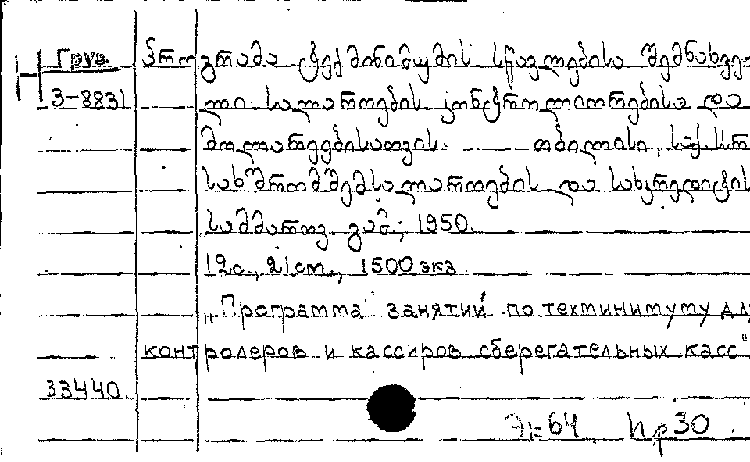 Груз. პროგრამა ტექმინიმუმის სწავლებისა შემნახვე
3-8831 ლი სალაროების კონტროლიორებისა და
მოლარეებისათვის. თბილისი, საქ. სსრ
სახშრომშემსალაროების და სახკრედიტის
სამმართვ. გამ., 1950.
12 с., 21 см., 1500 экз.
„Программа занятий по техминимуму для
контролеров и кассиров сберегательных касс"
33440
Эк 64 Пр 30